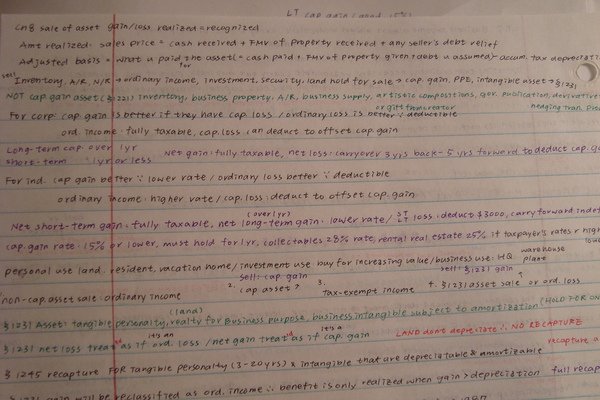 LT cap gain (good 15%)
Ch8 sale of asset gain/loss realized = recognized
Amt realized: sales price = cash received + FMV of property received + any seller's debt relief
Adjusted basis = what u paid for the asset (= cash paid + FMV of property given + debt u assumed) - accum. tax depreciation
sell Inventory, A/R, N/R → ordinary income, investment, security, land hold for sale → cap. gain, PPE, intangible asset → §1231
NOT cap. gain asset (§1221) inventory, business property, A/R, business supply, artistic compositions, gov. publication, derivative
or gift from creator hedging tran.
For corp: cap. gain is better if they have cap. loss / ordinary loss is better ∵ deductible
ord. income: fully taxable, cap. loss can deduct to offset cap. gain
Long-term cap: over 1yr Net gain: fully taxable, net loss: carryover 3 yrs back - 5 yrs forward to deduct cap. ga
short-term 1yr or less
For ind. cap gain better ∵ lower rate / ordinary loss better ∵ deductible
ordinary income: higher rate / cap. loss: deduct to offset cap. gain
(over 1yr)
Net short-term gain: fully taxable, net long-term gain: lower rate / ST LT loss: deduct $3000, carry forward indef
cap. gain rate: 15% or lower, must hold for 1yr, collectables 28% rate, rental real estate 25% if taxpayer's rate is high
personal use land: resident, vacation home / investment use buy for increasing value / business use: HQ, warehouse plant
sell: cap. gain sell: §1231 gain
non-cap. asset sale: ordinary income 2. cap. asset 3. tax-exempt income 4. §1231 asset sale or ord. loss
(land)
§1231 Asset: tangible personalty, realty for business purpose, business intangible subject to amortization (HOLD FOR ON
it's an it's a
§1231 net loss treated as if ord. loss / net gain treat as if cap. gain LAND don't depreciate ∴ NO RECAPTURE
recapture a
§1245 recapture FOR tangible personalty (3-20yrs) & intangible that are depreciatable & amortizable
gain will be reclassified as ord. income ∴ benefit is only realized when gain > depreciation full recap